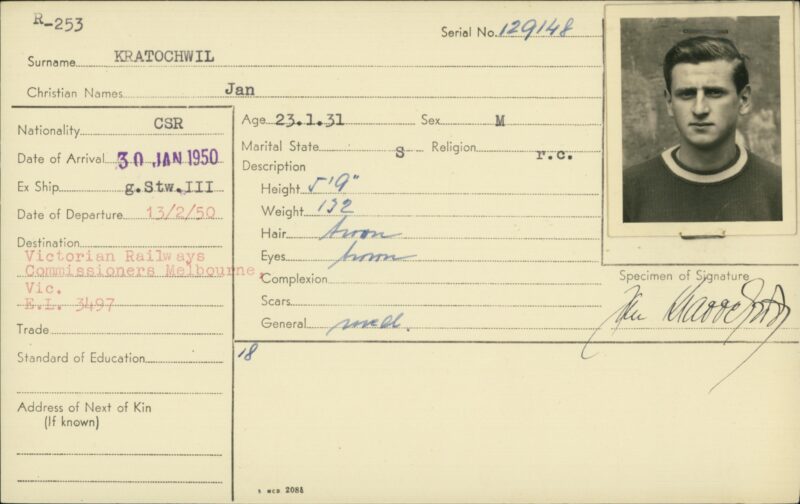 R-253
Serial No. 129148
Surname KRATOCHWIL
Christian Names Jan
Nationality CSR
Date of Arrival 30 JAN 1950
Ex Ship g.Stw.III
Date of Departure 13/2/50
Destination
Victorian Railways
Commissioners Melbourne,
Vic.
E.L. 3497
Trade
Standard of Education
Address of Next of Kin
(If known)
Age 23.1.31 Sex M
Marital State S Religion r.c.
Description
Height 5'9"
Weight 132
Hair brown
Eyes brown
Complexion
Scars
General med.
18
Specimen of Signature
Jan
2088